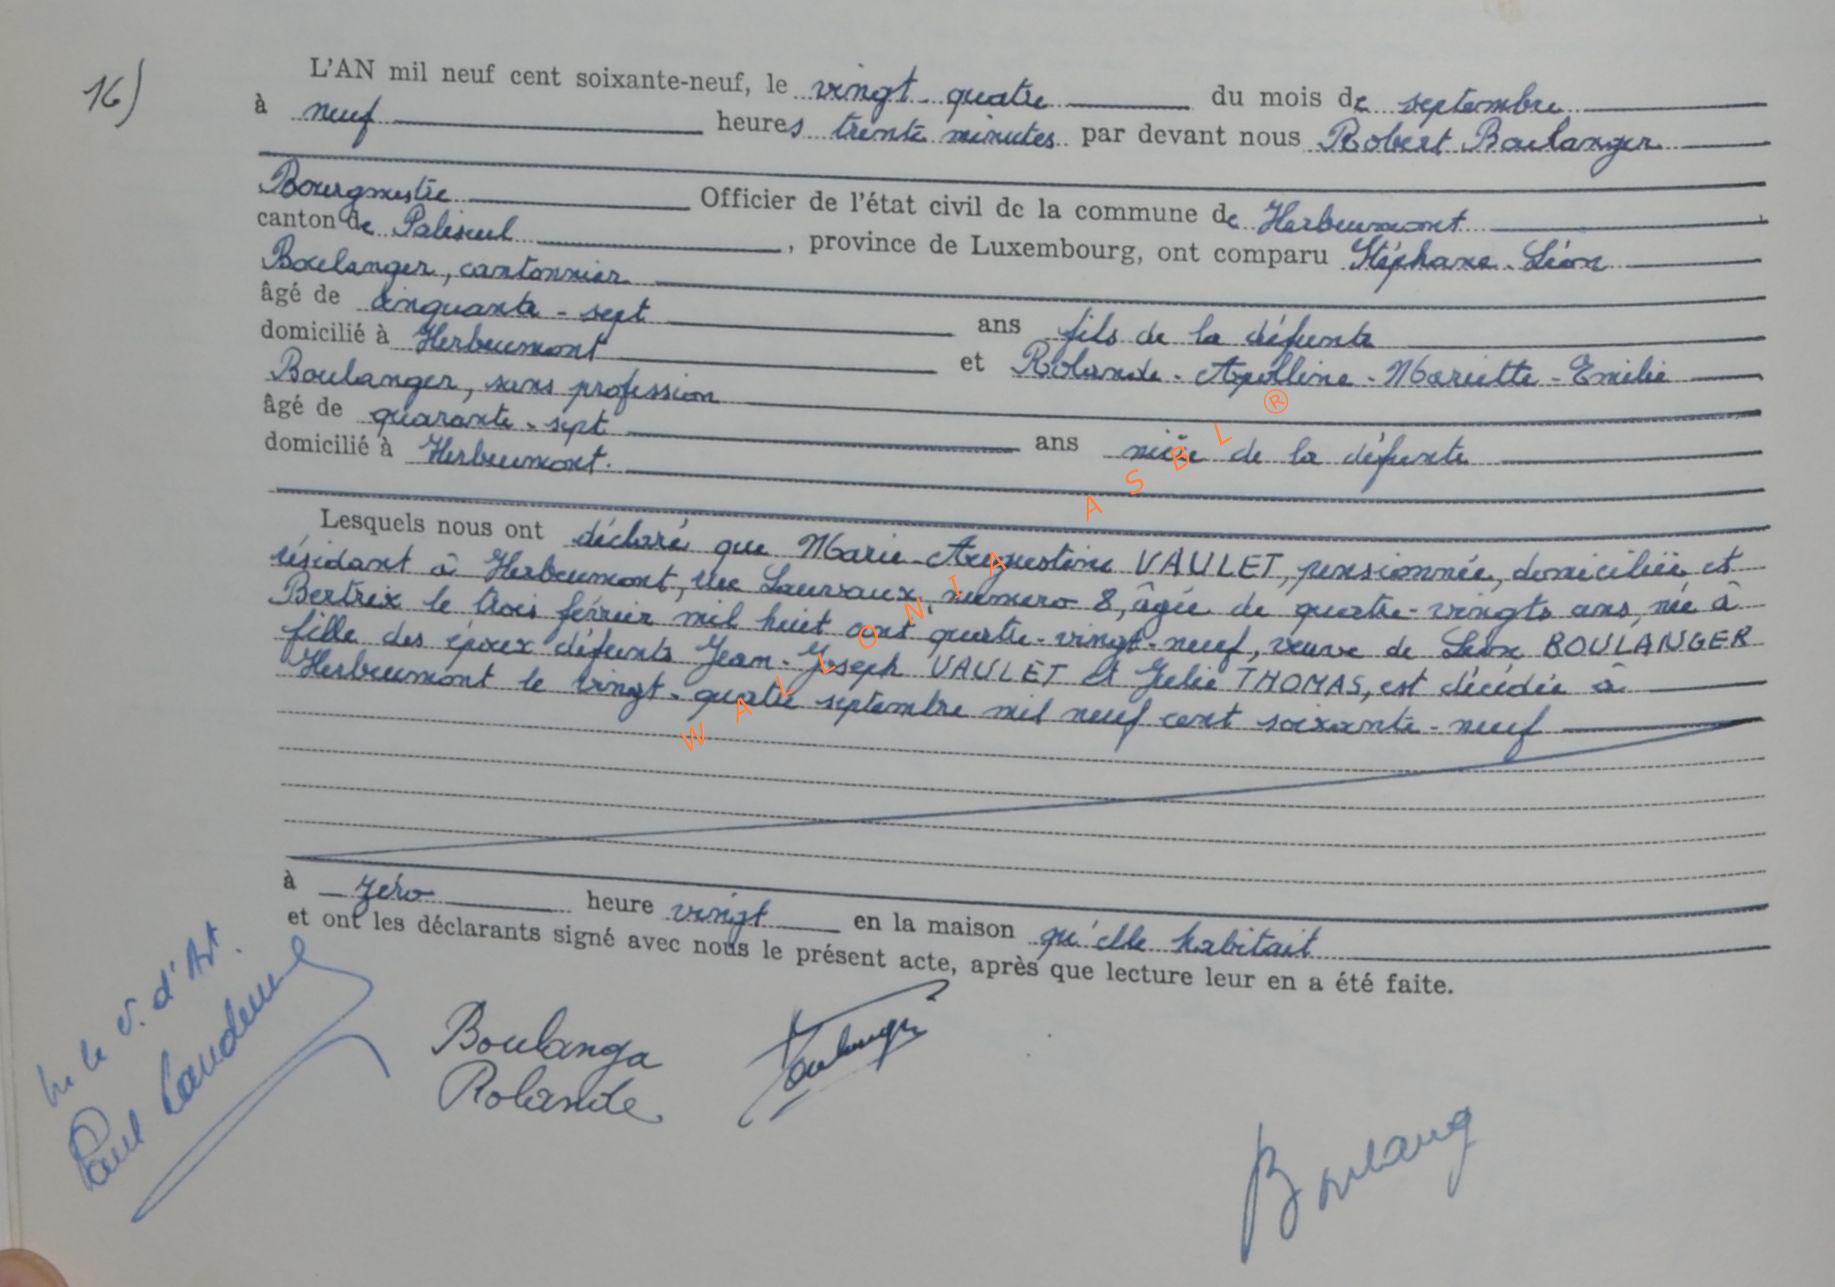 16)
L'AN mil neuf cent soixante-neuf, le vingt-quatre du mois de septembre
à neuf heures trente minutes par devant nous Robert Boulanger
Bourgmestre Officier de l'état civil de la commune de Herbeumont
canton de Paliseul, province de Luxembourg, ont comparu Stéphane-Léon
Boulanger, cantonnier
âgé de cinquante-sept ans fils de la défunte
domicilié à Herbeumont et Rolande-Apolline-Mariette-Emilie
Boulanger, sans profession
âgé de quarante-sept ans nièce de la défunte
domicilié à Herbeumont.
Lesquels nous ont déclaré que Marie-Augustine VAULET, pensionnée, domiciliée et
résidant à Herbeumont, rue Lauvaux, numéro 8, âgée de quatre-vingts ans, née à
Bertrix le trois février mil huit cent quatre-vingt-neuf, veuve de Léon BOULANGER
fille des époux défunts Jean-Joseph VAULET et Julie THOMAS, est décédée à
Herbeumont le vingt-quatre septembre mil neuf cent soixante-neuf
à zéro heure vingt en la maison qu'elle habitait
et ont les déclarants signé avec nous le présent acte, après que lecture leur en a été faite.
Paul
Boulanger
Rolande
Boulang
WALLONIA ASBL ®